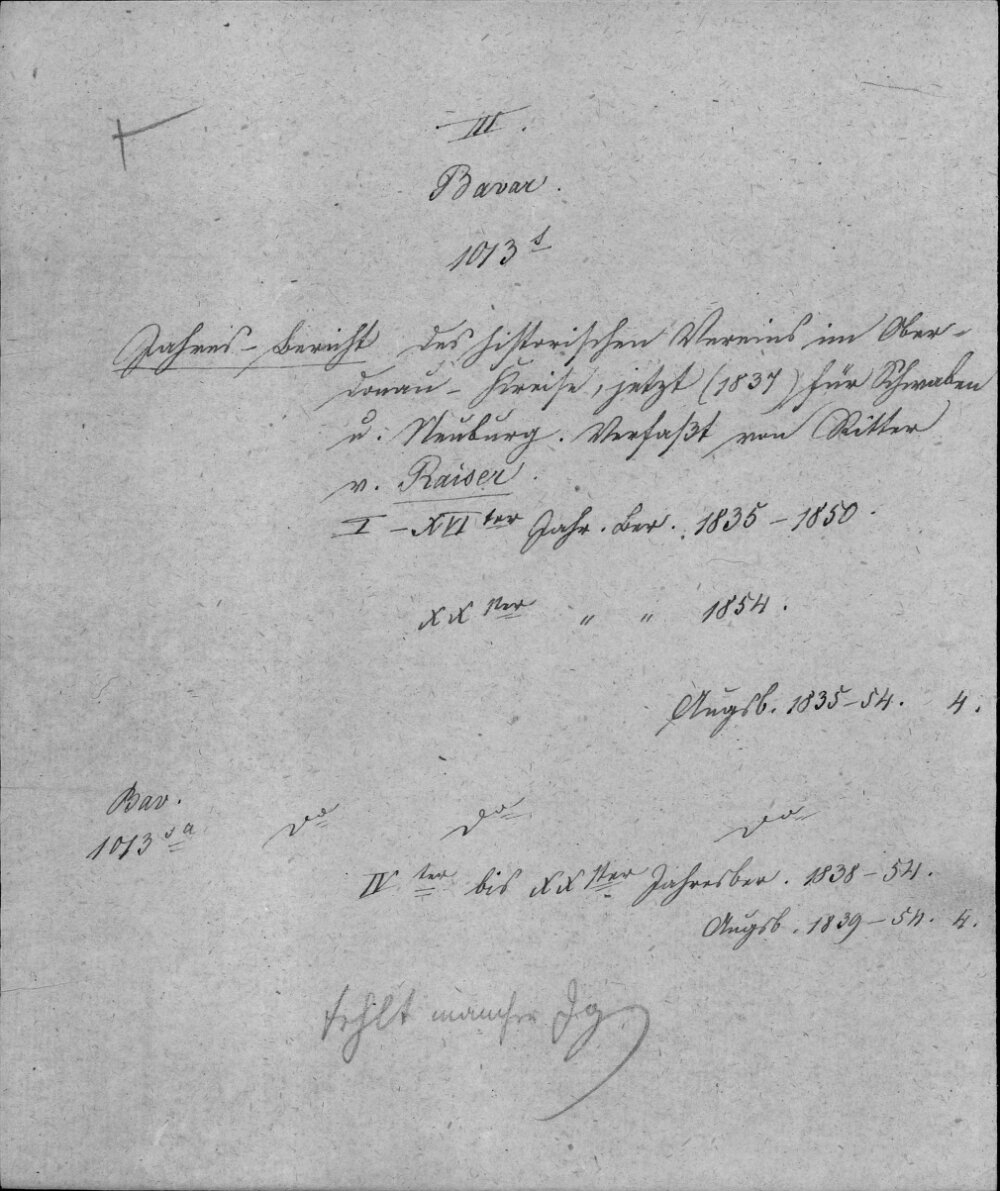 III.
Bavar.
1013 s
Jahres-Bericht des historischen Vereins im Ober-
donau-Kreise, jetzt (1837) für Schwaben
u. Neuburg. Verfaßt von Ritter
v. Raiser.
I–XVI ter Jahr. Ber. 1835–1850.
XX ster " " 1854.
Augsb. 1835–54. 4.
Bav.
1013 s a do do do
IV ter bis XX ster Jahresber. 1838–54.
Augsb. 1839–54. 4.
fehlt mancher Jg